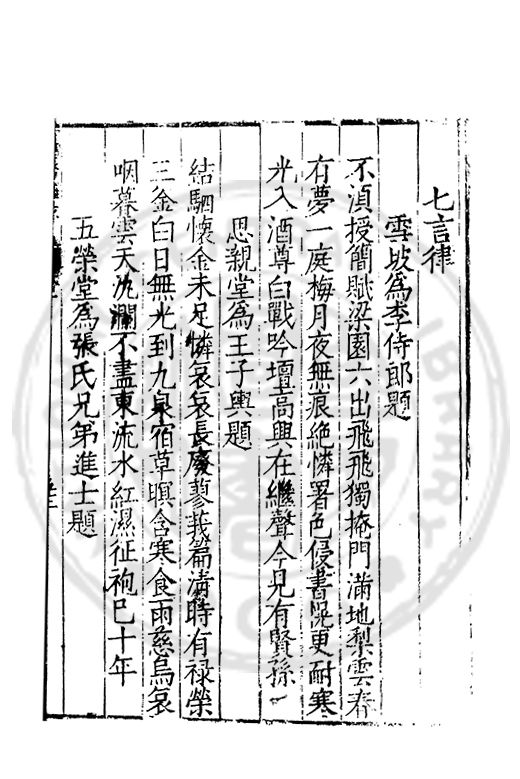 七言律
雪坡為李侍郎題
不須授簡賦梁園六出飛飛獨掩門滿地梨雲春
有夢一庭梅月夜無痕絕憐署色侵書幌更耐寒
光入酒尊白戰吟壇高興在繼聲今見有賢孫
思親堂為王子輿題
結駟懷金未足憐哀哀長廢蓼莪篇清時有祿榮
三釜白日無光到九泉宿草暝含寒食雨慈烏哀
咽暮雲天汍瀾不盡東流水紅濕征袍已十年
五榮堂為張氏兄弟進士題